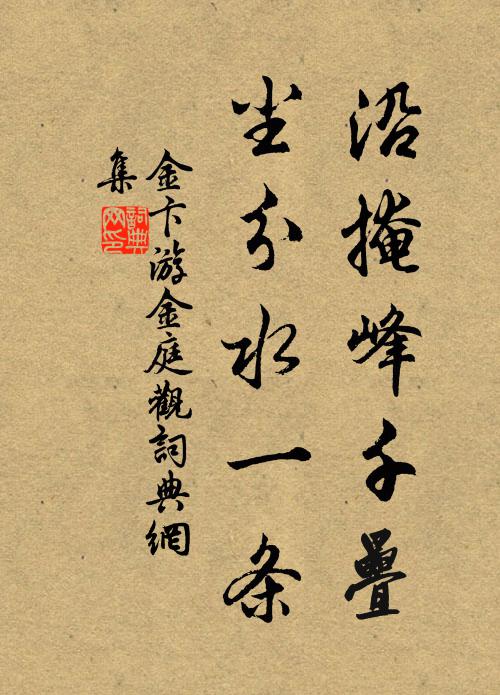 沿掩峰千疊
坐分水一条
金卞游金庭觀詞典網
集
詞典
网印